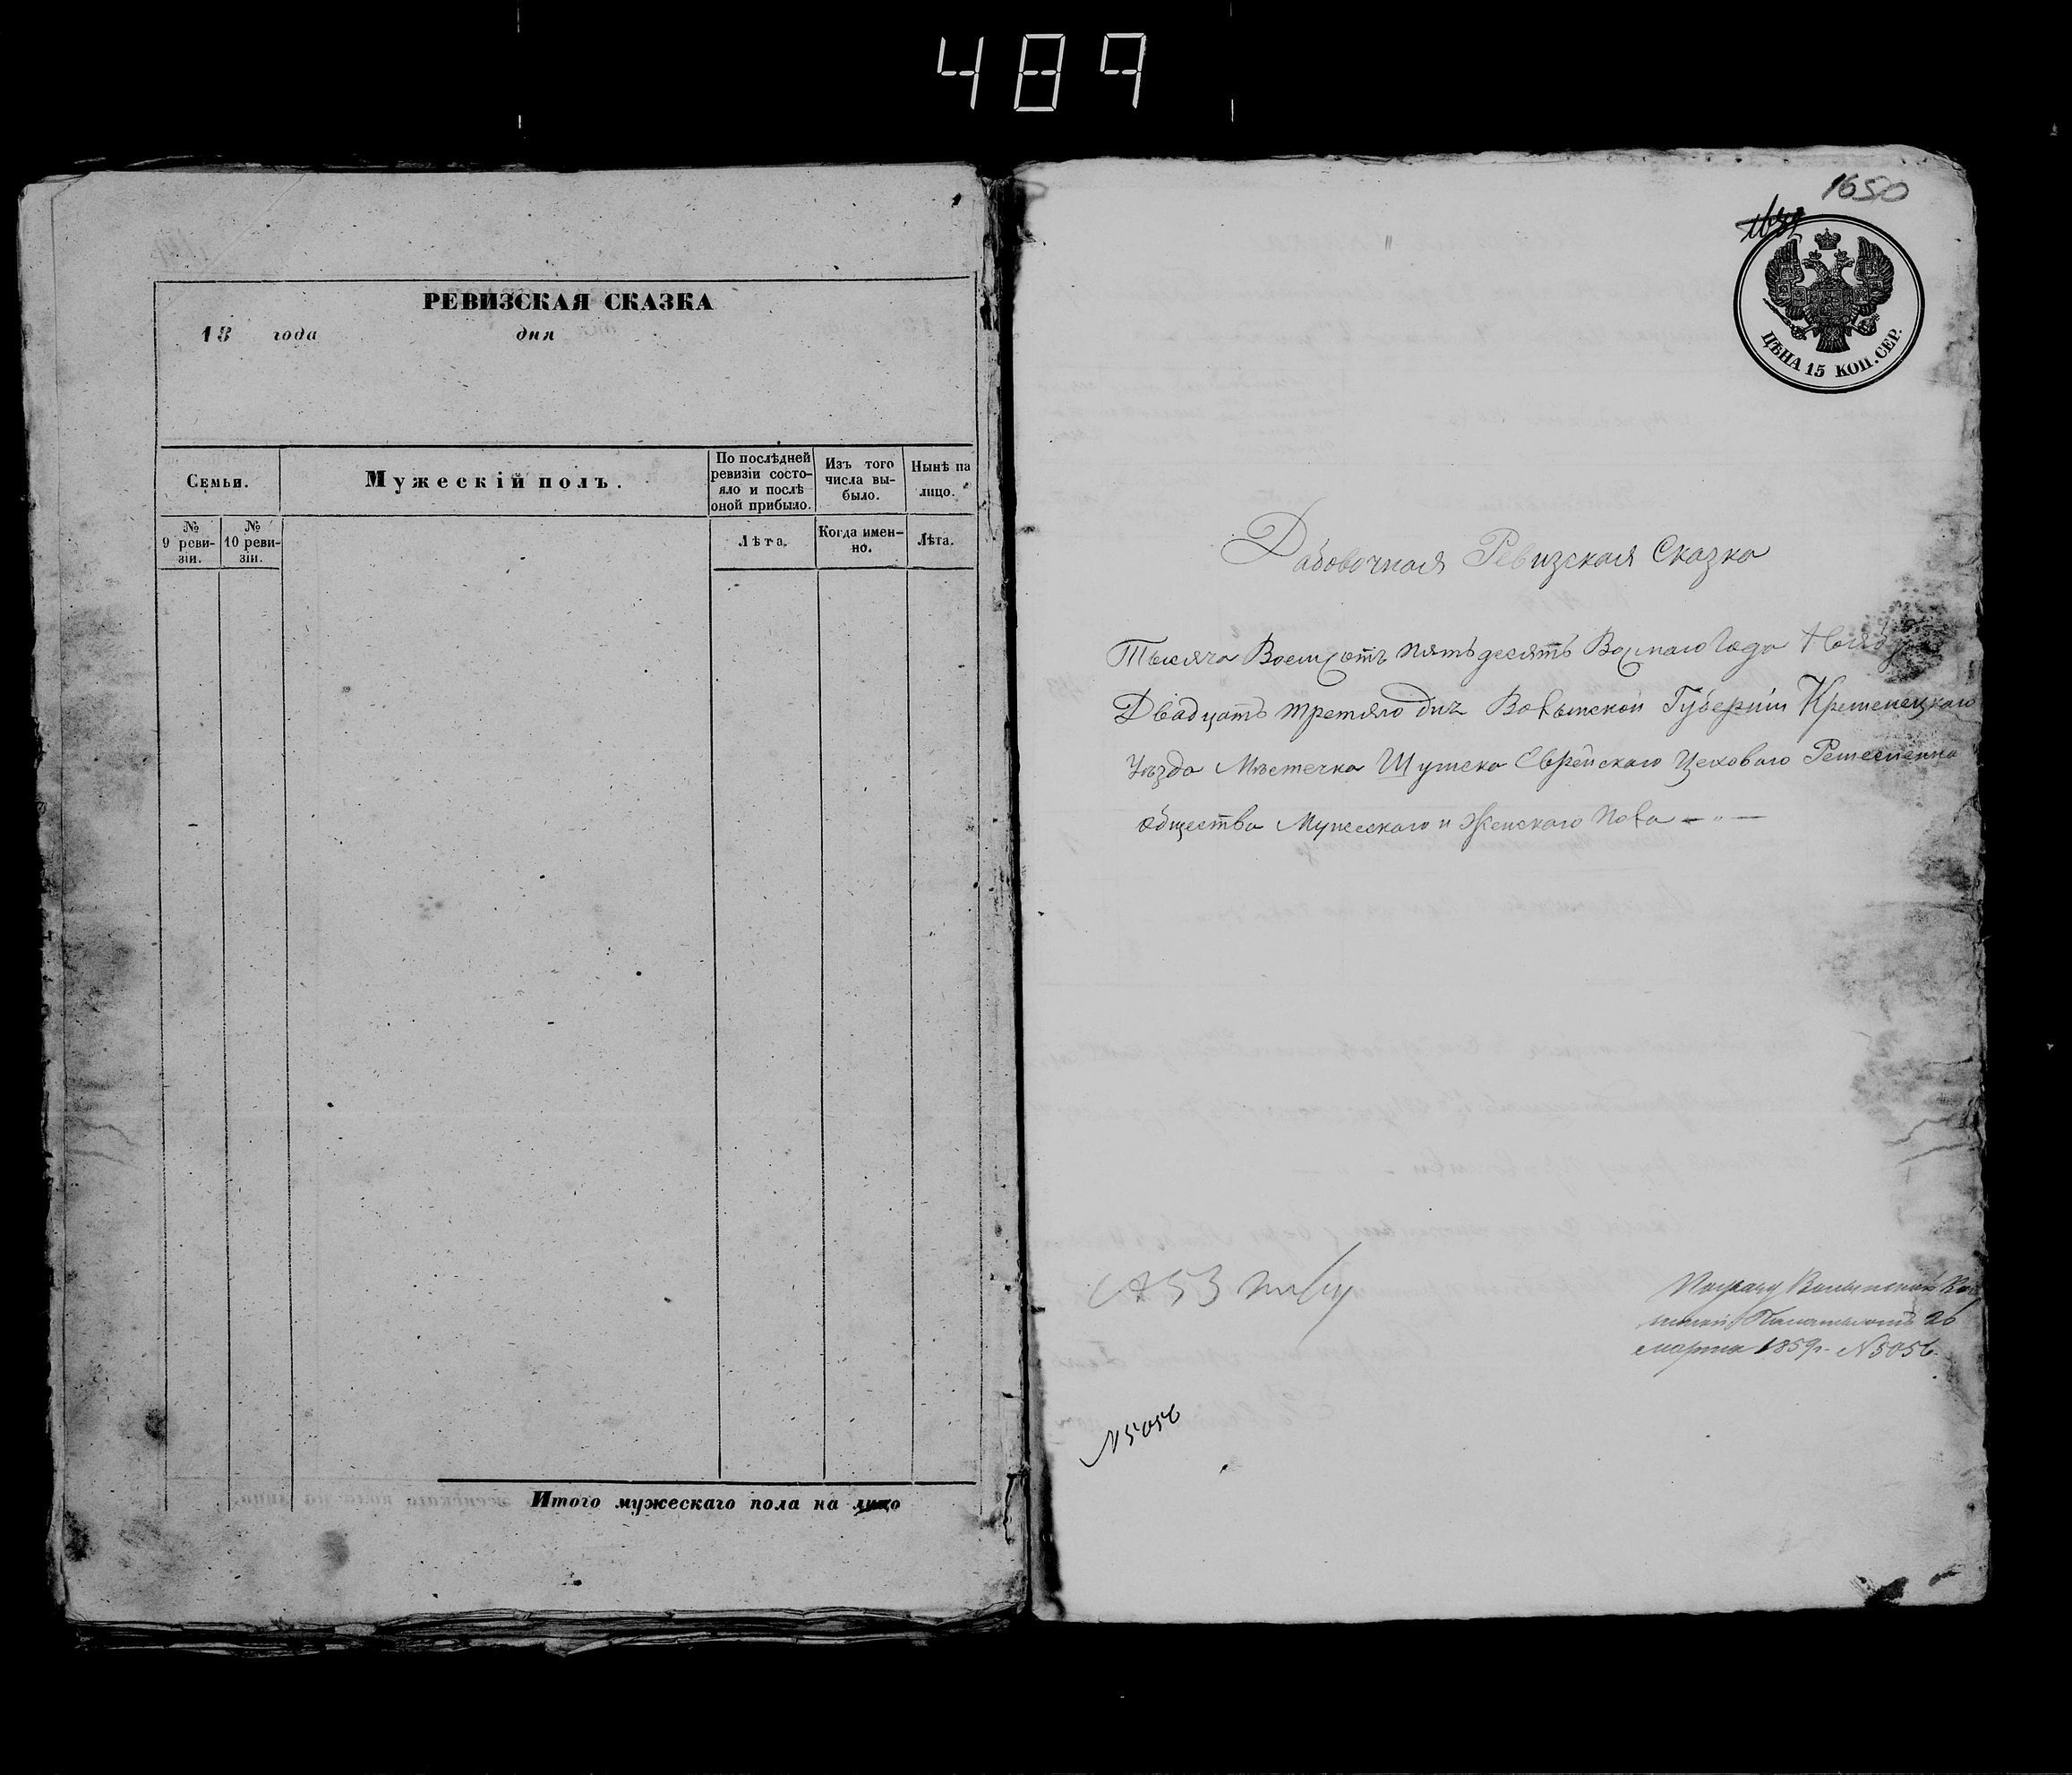 489
РЕВИЗСКАЯ СКАЗКА
18 года дня
Семьи.
Мужескій полъ.
По послѣдней ревизіи состо-
яло и послѣ
оной прибыло.
Изъ того
числа вы-
было.
Нынѣ на
лицо.
№
9 реви-
зіи.
№
10 реви-
зіи.
Лѣта.
Когда имен-
но.
Лѣта.
Итого мужескаго пола на лицо
1650
ЦѢНА 15 КОП. СЕР.
Дабовочная Ревизская Сказка
Тысяча Восемсотъ пятьдесятъ Восмаго Года Ноября
Двадцать третяго дня Волынской Губерніи Кременецкаго
Уѣзда Мѣстечка Шумска Еврейскаго Цеховаго Ремесленна
общества Мужескаго и Женскаго Пола
Волынской
Палаты 26
марта 1859 г. N 5056
N 5056